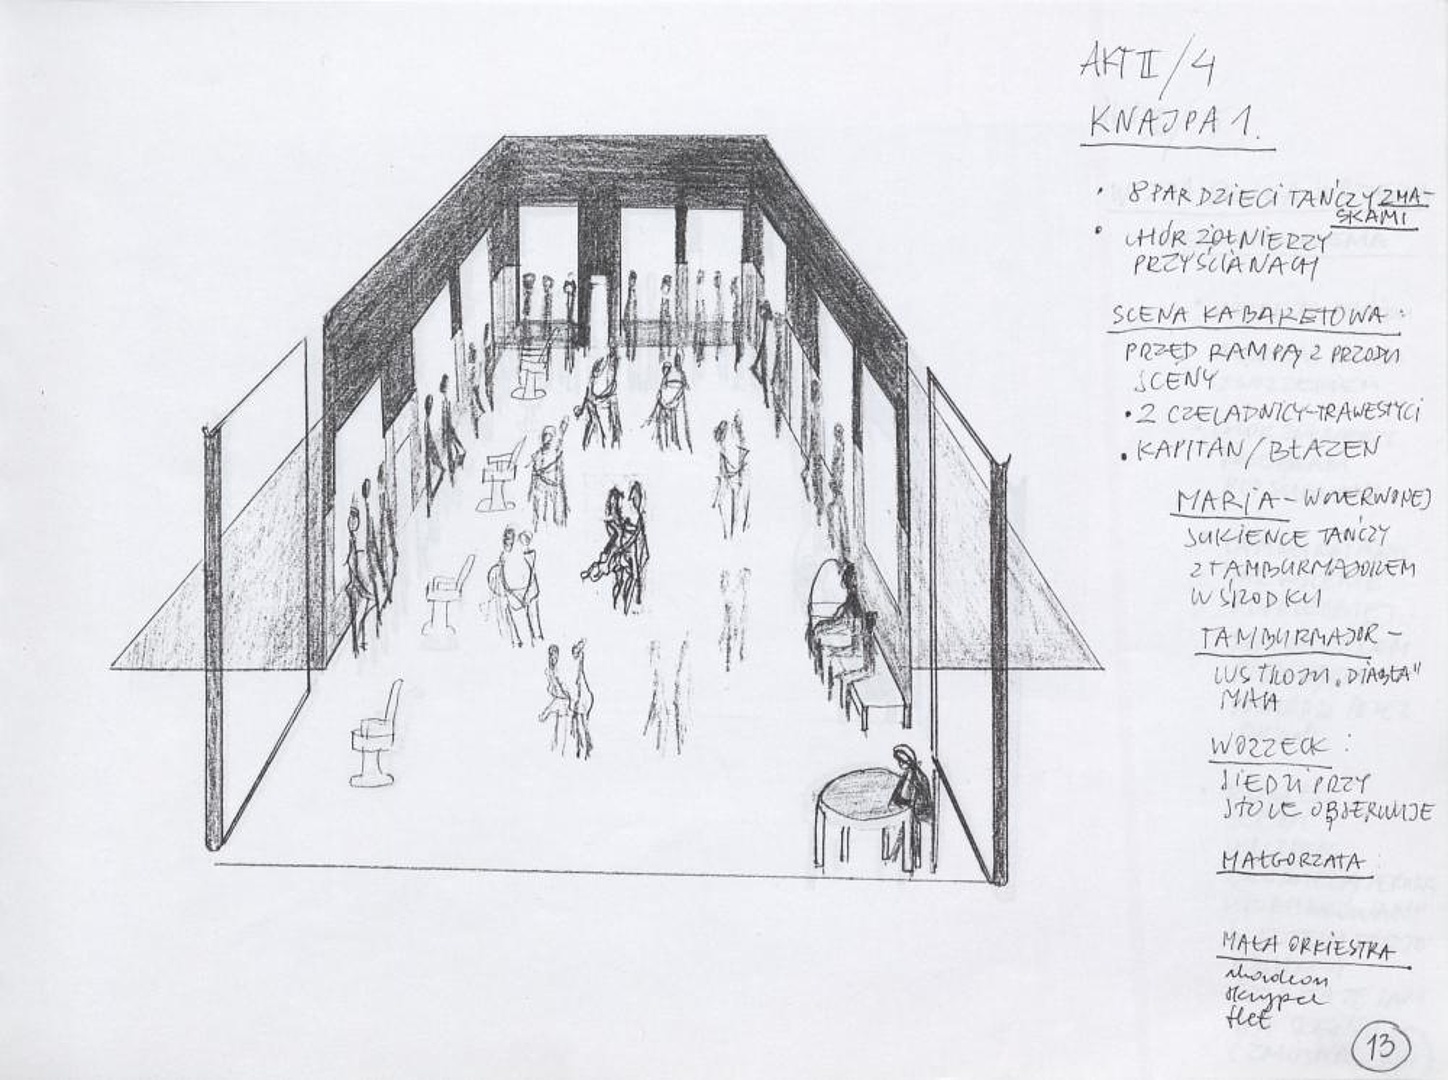 AKT II/4
KNAJPA 1.
• 8 PAR DZIECI TAŃCZY Z MA-
SKAMI
• CHÓR ŻOŁNIERZY
PRZY ŚCIANACH
SCENA KABARETOWA:
PRZED RAMPĄ Z PRZODU
SCENY
• 2 CZELADNICY-TRAWESTYCI
• KAPITAN/BŁAZEN
MARIA - W CZERWONEJ
SUKIENCE TAŃCZY
Z TAMBURMAJOREM
W ŚRODKU
TAMBURMAJOR -
W STROJU „DIABŁA"
WOZZECK:
SIEDZI PRZY
STOLE OBSERWUJE
MAŁGORZATA:
MAŁA ORKIESTRA
akordeon
skrzypce
flet
13